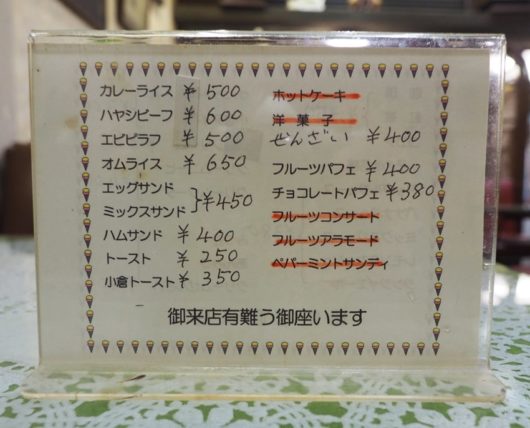 カレーライス ¥500
ハヤシビーフ ¥600
エビピラフ ¥500
オムライス ¥650
エッグサンド
ミックスサンド }¥450
ハムサンド ¥400
トースト ¥250
小倉トースト ¥350
ホットケーキ
洋菓子
ぜんざい ¥400
フルーツパフェ ¥400
チョコレートパフェ ¥380
フルーツコンサート
フルーツアラモード
ペパーミントサンディ
御来店有難う御座います